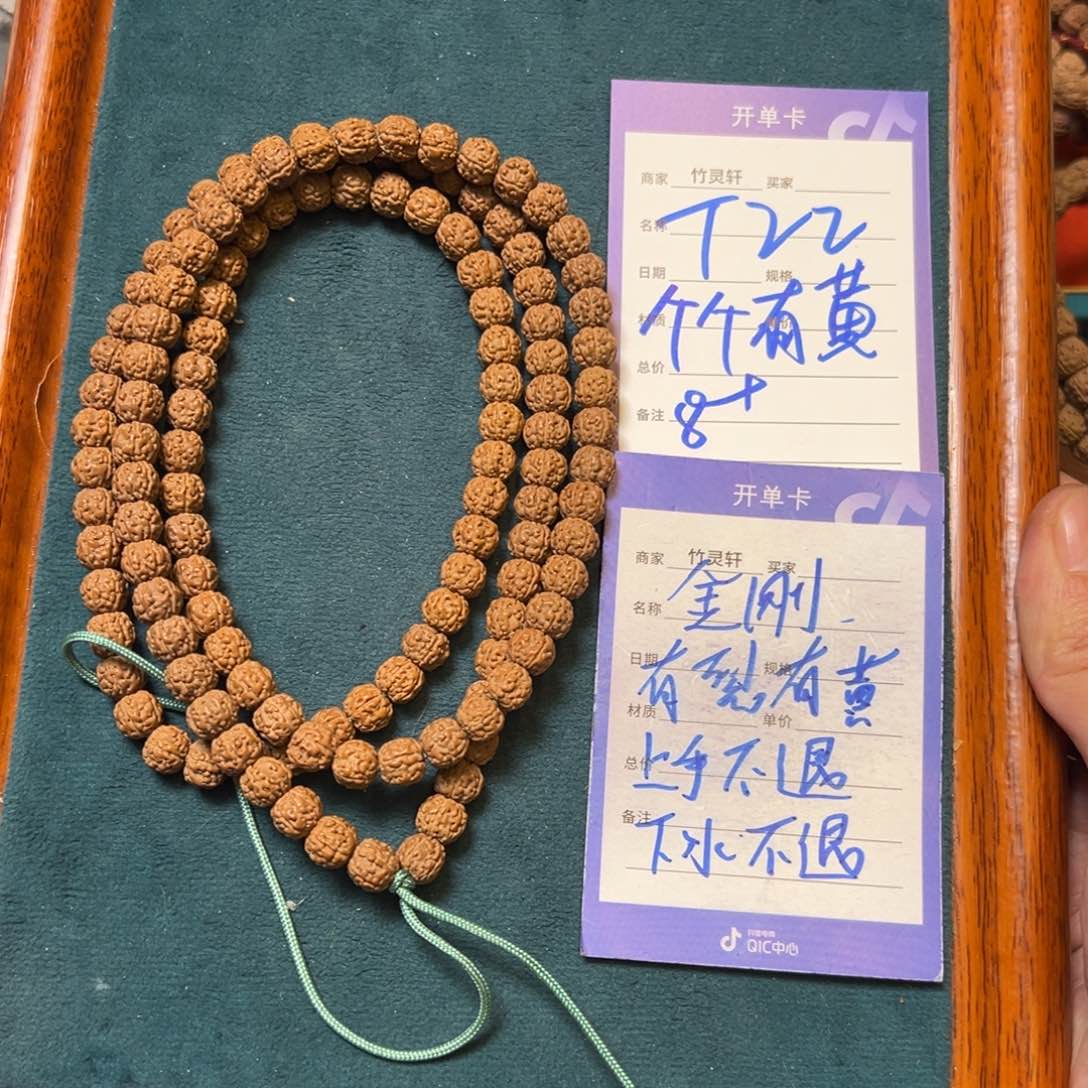 开单卡
商家 竹灵轩 买家
名称 T22
日期 规格
材质 竹有黄
总价
备注 8+
开单卡
商家 竹灵轩 买家
名称 金刚
日期 规格
有裂有黄
材质 单价
总价 上手不退
备注 下水不退
QIC中心